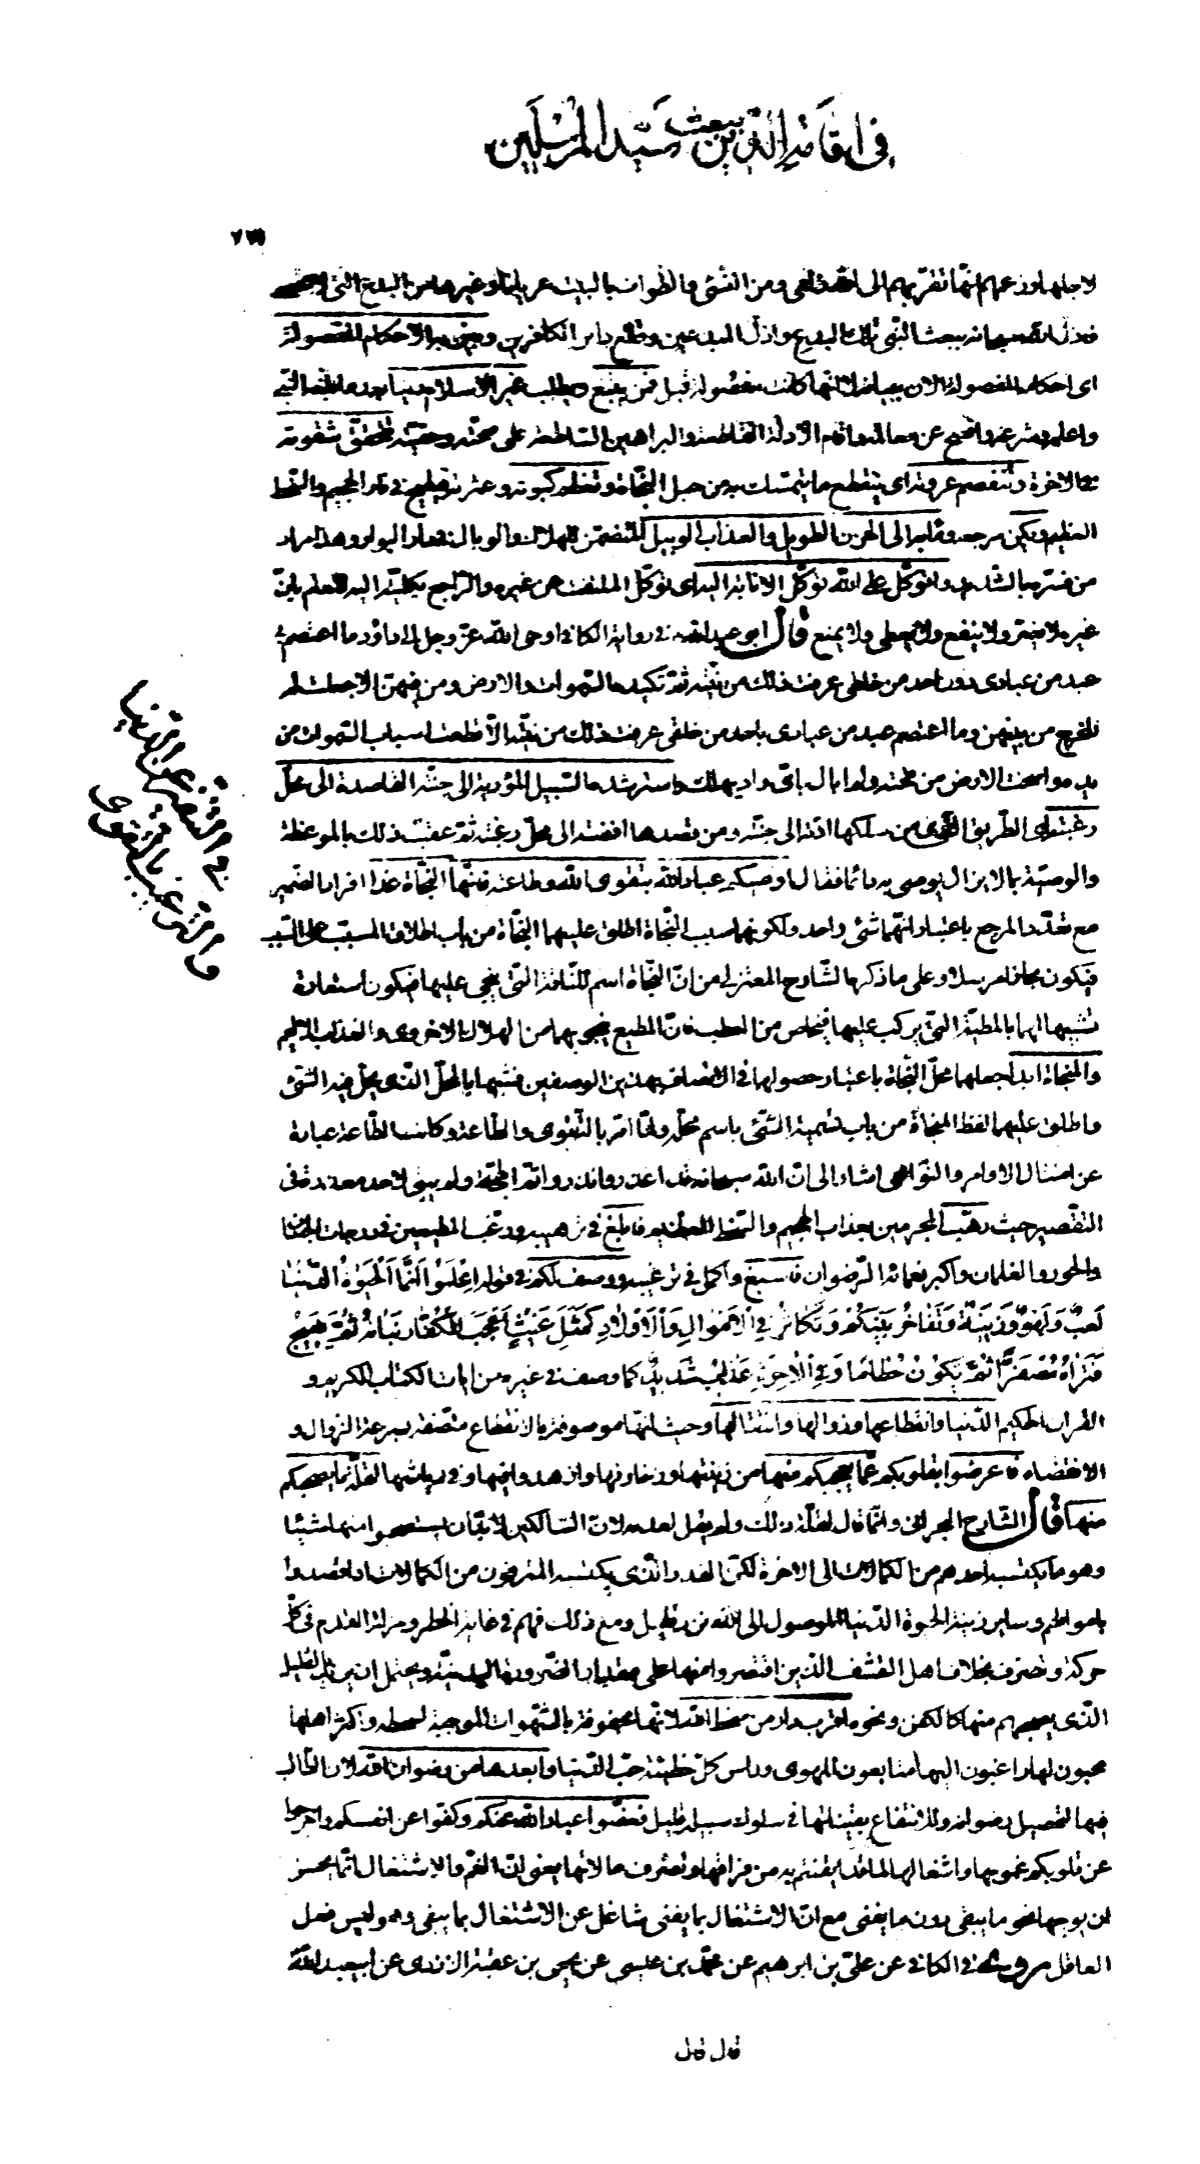 في اقامة الدين ببعث سيد المرسلين
لاجلها وزعمهم انها تقربهم الى الله تعالى ومن الشئ والطواف بالبيت عريانا وغيرها من البدع التي
فدل الله سبحانه ببعث النبي تلك البدع واذل المبدعين وقطع دابر الكافرين وبين به الاحكام المفصولة
اي احكامه المفصولة الان ببيانه لا انها كانت مفصولة قبل فمن يتبع ويطلب غير الاسلام دينا بعد ما
واعلم بشرعه وافصح عن معالمه واقام الادلة القاطعة والبراهين الساطعة على صحته وحقيته تتحقق شقوته
في الاخرة وتنفصم عروته اي ينقطع ما يتمسك به من حبل النجاة وتعظم كبوته وعثرته في نار الجحيم والسخط
العظيم ويكن مرجعه ومآبه الى الحزن الطويل والعذاب الوبيل المتضمن للهلاك والوبال ودار البوار وهذا مراد
من فسره بالشديد واتوكل على الله توكل الانابة اليه اي توكل الملتفت عن غيره والراجع بكليته اليه للعلم بان
غيره لا يضر ولا ينفع ولا يعطى ولا يمنع قال ابو عبد الله في رواية الكافي اوحى الله عز وجل الى داود ما اعتصم بي
عبد من عبادي دون احد من خلقي عرفت ذلك من نيته ثم تكيده السموات والارض ومن فيهن الا جعلت له
المخرج من بينهن وما اعتصم عبد من عبادي باحد من خلقي عرفت ذلك من نيته الا قطعت اسباب السموات من
يديه واسخت الارض من تحته ولم ابال باي واد يهلك واسترشده السبيل المؤدية الى جنته القاصدة الى محل
رغبته اي الطريق التي من سلكها ادته الى جنته ومن قصدها افضته الى محل رغبته ثم عقب ذلك بالموعظة
والوصية بما لايزال يوصى به دائما فقال اوصيكم عباد الله بتقوى الله وطاعته فانها النجاة غدا افراد الضمير
مع تعدد المرجع باعتبار انهما شئ واحد ولكونهما سبب النجاة اطلق عليهما النجاة من باب اطلاق المسبب على السبب
فيكون مجازا مرسلا وعلى ما ذكره الشارح المعتزلي من ان النجاة اسم للناقة التي ينجى عليها فيكون استعارة
تشبيها لها بالمطية التي يركب عليها فيخلص من العطب فان المطيع ينجو بهما من الهلاك الاخروى والعذاب الاليم
والمنجاة ابدا جعلهما محل النجاة باعتبار حصولها في الاتصاف بهذين الوصفين فشبها بالمحل الذي يحل فيه الشئ
واطلق عليهما لفظ المنجاة من باب تسمية الشئ باسم محله ولما امر بالتقوى والطاعة وكانت الطاعة عبارة
عن امتثال الاوامر والنواهي اشار الى ان الله سبحانه قد اعذر وانذر واتم الحجة ولم يبق لاحد معذرة في
التقصير حيث رهب المجرمين بعذاب الجحيم والسخط العظيم فابلغ في ترهيبه ورغب المطيعين في درجات الجنان
والحور والغلمان واكبر نعمائه الرضوان فاسبغ واكمل في ترغيبه ووصف لكم في قوله اعلموا انما الحيوة الدنيا
لعب ولهو وزينة وتفاخر بينكم وتكاثر في الاموال والاولاد كمثل غيث اعجب الكفار نباته ثم يهيج
فتراه مصفرا ثم يكون حطاما وفي الاخرة عذاب شديد كما وصف في غيره من ايات الكتاب الكريم و
القران الحكيم الدنيا وانقطاعها وزوالها وانتقالها وحيث انها موصوفة بالانقطاع متصفة بسرعة الزوال و
الانقضاء فاعرضوا بقلوبكم عما يعجبكم فيها من زينتها وزخارفها وازهدوا فيها وفي رياشها لقلة ما يصحبكم
منها قال الشارح البحراني وانما قال لقلة ذلك ولم يقل لعدمه لان السالكين لابد ان يستصحبوا منها شيئا
وهو ما يكتسبه احدهم من الكمالات الى الاخرة لكن القدر الذي يكتسبه المترفون من الكمالات اذا قصدوا
باموالهم وساير زينة الحيوة الدنيا الوصول الى الله نزر قليل ومع ذلك فهم في غاية الخطر ومزلة القدم في كل
حركة وتصرف بخلاف اهل القشف الذين اقتصروا منها على مقدار الضرورة البدنية ويحتمل ان يريد بالقليل
الذي يصحبهم منها كالكفن ونحوه اقرب دار من سخط الله لانها محفوفة بالشهوات الموجبة لسخطه واكثر اهلها
محبون لها راغبون اليها متابعون للهوى وراس كل خطيئة حب الدنيا وابعدها من رضوان الله لان الطالب
فيها لتحصيل رضوانه وللانتفاع بقيناتها في سلوك سبيله قليل فغضوا عباد الله عنكم وكفوا عن انفسكم واخرجوا
عن قلوبكم غمومها واشغالها لما قد ايقنتم به من فراقها وتصرف حالاتها يعني ان الغم والاشتغال انما يحسن
ان يوجها نحو ما يبقى دون ما يفنى مع ان الاشتغال بما يفنى شاغل عن الاشتغال بما يبقى وهو ليس فعل
العاقل روى في الكافي عن علي بن ابرهيم عن محمد بن عيسى عن يحيى بن عقبة الازدى عن ابيعبد الله
في التنفير عن الدنيا
والترغيب بالتقوى
قال قال